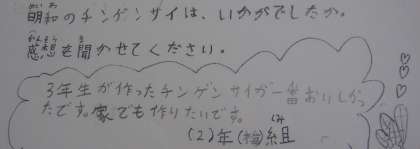 明和のチンゲンサイは、いかがでしたか。
感想を聞かせてください。
3年生が作ったチンゲンサイが一番おいしかっ
たです。家でも作りたいです。
(2)年(梅)組